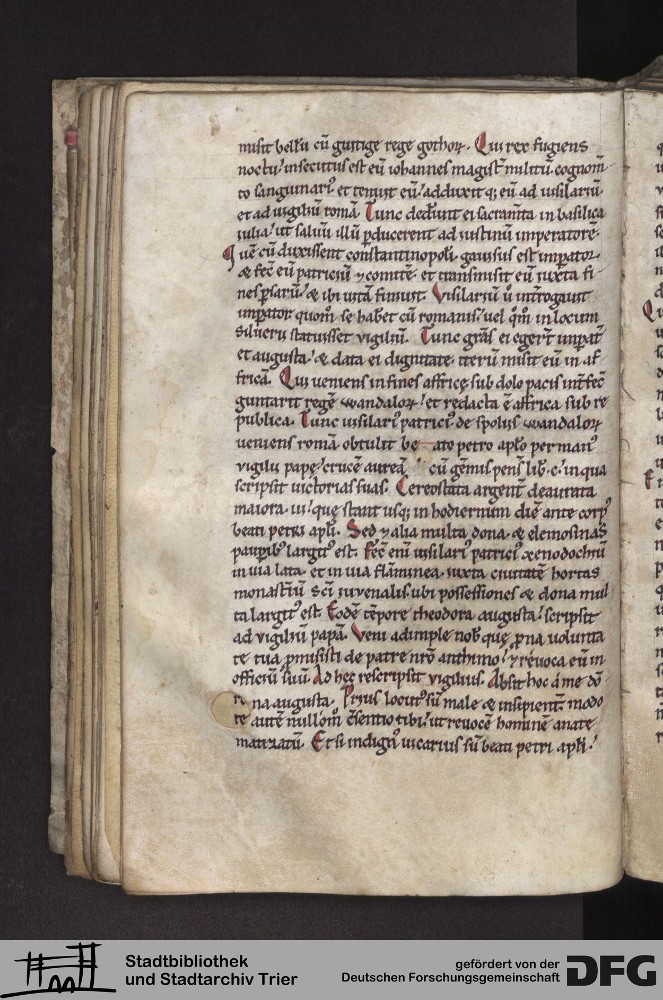 misit bellū cū guitige rege gothoꝝ. Qui rex fugiens
noctu. insecutus est eū iohannes magist̄ militū cognom̄
to sanguinari᷒. et tenuit eū. adduxit q; eū ad uisilariū.
et ad uigiliū romā. Tunc dedert̄ ei sacram̄ta in basilica
iulia. ut saluū illū ꝑducerent ad iustinū imperatorē.
Quē cū duxissent constantinopolī. gauisus est imꝑator.
& fec̄ eū patriciū ⁊ comitē. et transmisit eū iuxta fi
nes ꝑsarū. & ibi uitā finiuit. Visilariū ū int̄rogauit
imꝑator quom̄ se habet cū romanis. uel q̄m̄ in locum
Siluerii statuisset vigiliū. Tunc grās ei egert̄ imꝑat̄
et augusta. & data ei dignitate. iterū misit eū in af
fricā. Qui ueniens in fines affricę sub dolo pacis int̄fec̄
guntarit regē wandaloꝝ. et redacta ē affrica sub re
publica. Tunc uisilari᷒ patrici᷒ de spoliis wandaloꝝ
ueniens romā obtulit be ato petro apl̄o per man᷒
vigilii papę. crucē aureā cū gēmis pens̄ lib̄. c. in qua
scripsit uictorias suas. Cereostata argent̄ deaurata
maiora. ii. quę stant usq; in hodiernum diē ante corp᷒
beati petri apl̄i. Sed ⁊ alia multa dona. & elemosinas
pauꝑib᷒ largit᷒ est. Fec̄ enī uisilari᷒ patrici᷒ xenodochiū
in uia lata. et in uia flāminea. iuxta ciuitatē hortas
monast̄iū sc̄i iuvenalis. ubi possessiones & dona mul
ta largit᷒ est. Eodē tēpore theodora augusta. scripsit
ad vigiliū papā. Veni adimple nob̄ que ꝓna uolunta
te tua ꝓmisisti de patre nr̄o anthimo. ⁊ reuoca eū in
officiū suū. Ad hęc rescripsit vigilius. Absit hoc a me dō
na augusta. Prius locut᷒ sū male & insipient̄. modo
te autē nullom̄ c̄sentio tibi. ut reuocē hominē anate
matizatū. Et si indign᷒ uicarius sū beati petri apl̄i.
Stadtbibliothek
und Stadtarchiv Trier
gefördert von der
Deutschen Forschungsgemeinschaft
DFG